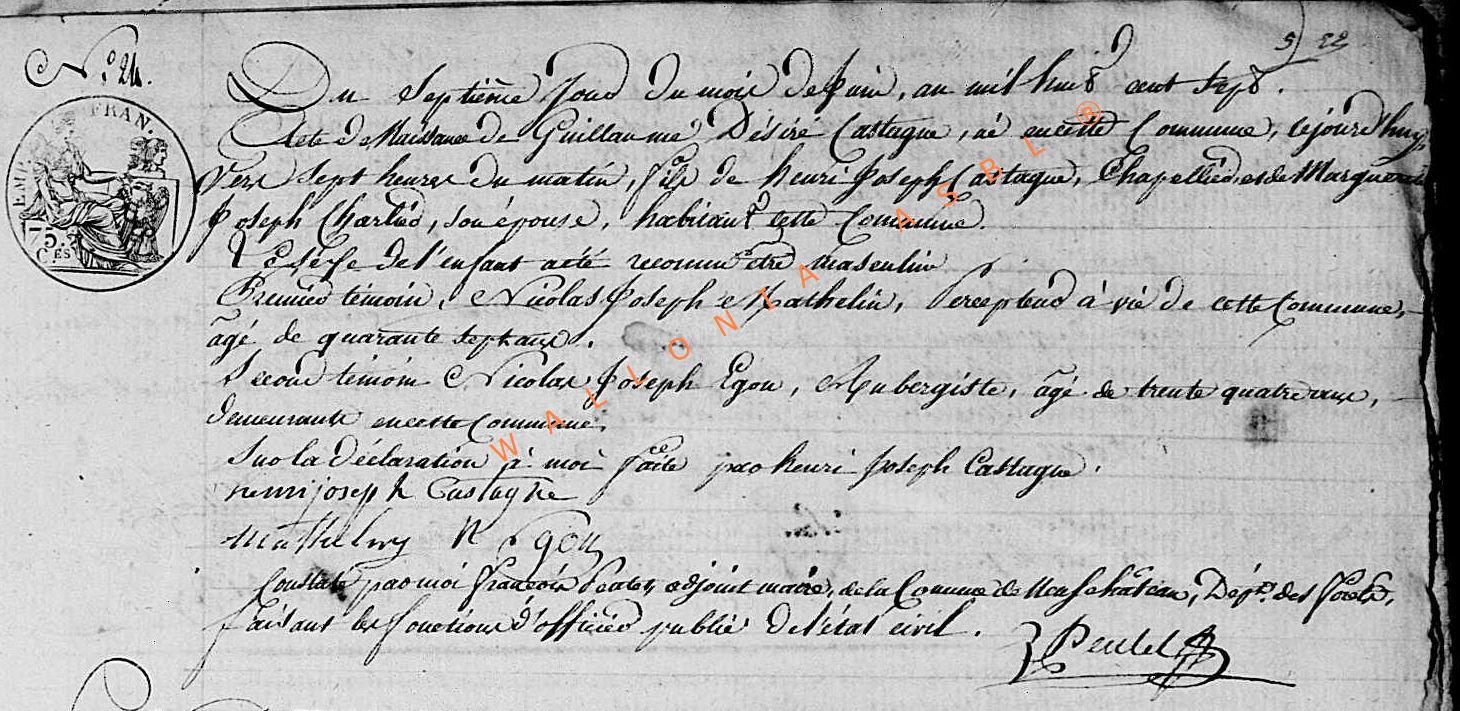 N.° 24.
5 22
EMP. FRAN.
75.
C.ES
Du Septième Jour du mois de Juin, an mil huit cent sept.
Acte de Naissance de Guillaume Désiré Castagne, né en cette Commune, cejourd'huy
vers sept heures du matin, fils de henri Joseph Castagne, Chapellier et de Marguerite
Joseph Charlier, son épouse, habitant cette Commune.
Le sexe de l'enfant acté reconnu être masculin
Premier témoin, Nicolas Joseph Mathelin, Percepteur à vie de cette Commune,
âgé de quarante sept ans.
Second témoin Nicolas Joseph Egon, Aubergiste, âgé de trente quatre ans,
demeurants en cette Commune.
Sur la déclaration à moi faite par henri Joseph Castagne.
henri joseph Castagne
Mathelin N Egon
Constaté par moi François adjoint maire, de la Comune de Neufchâteau, Dép.t des Forêts,
faisant les fonctions d'officier public de l'état civil.
WALLONIA ASBL ®